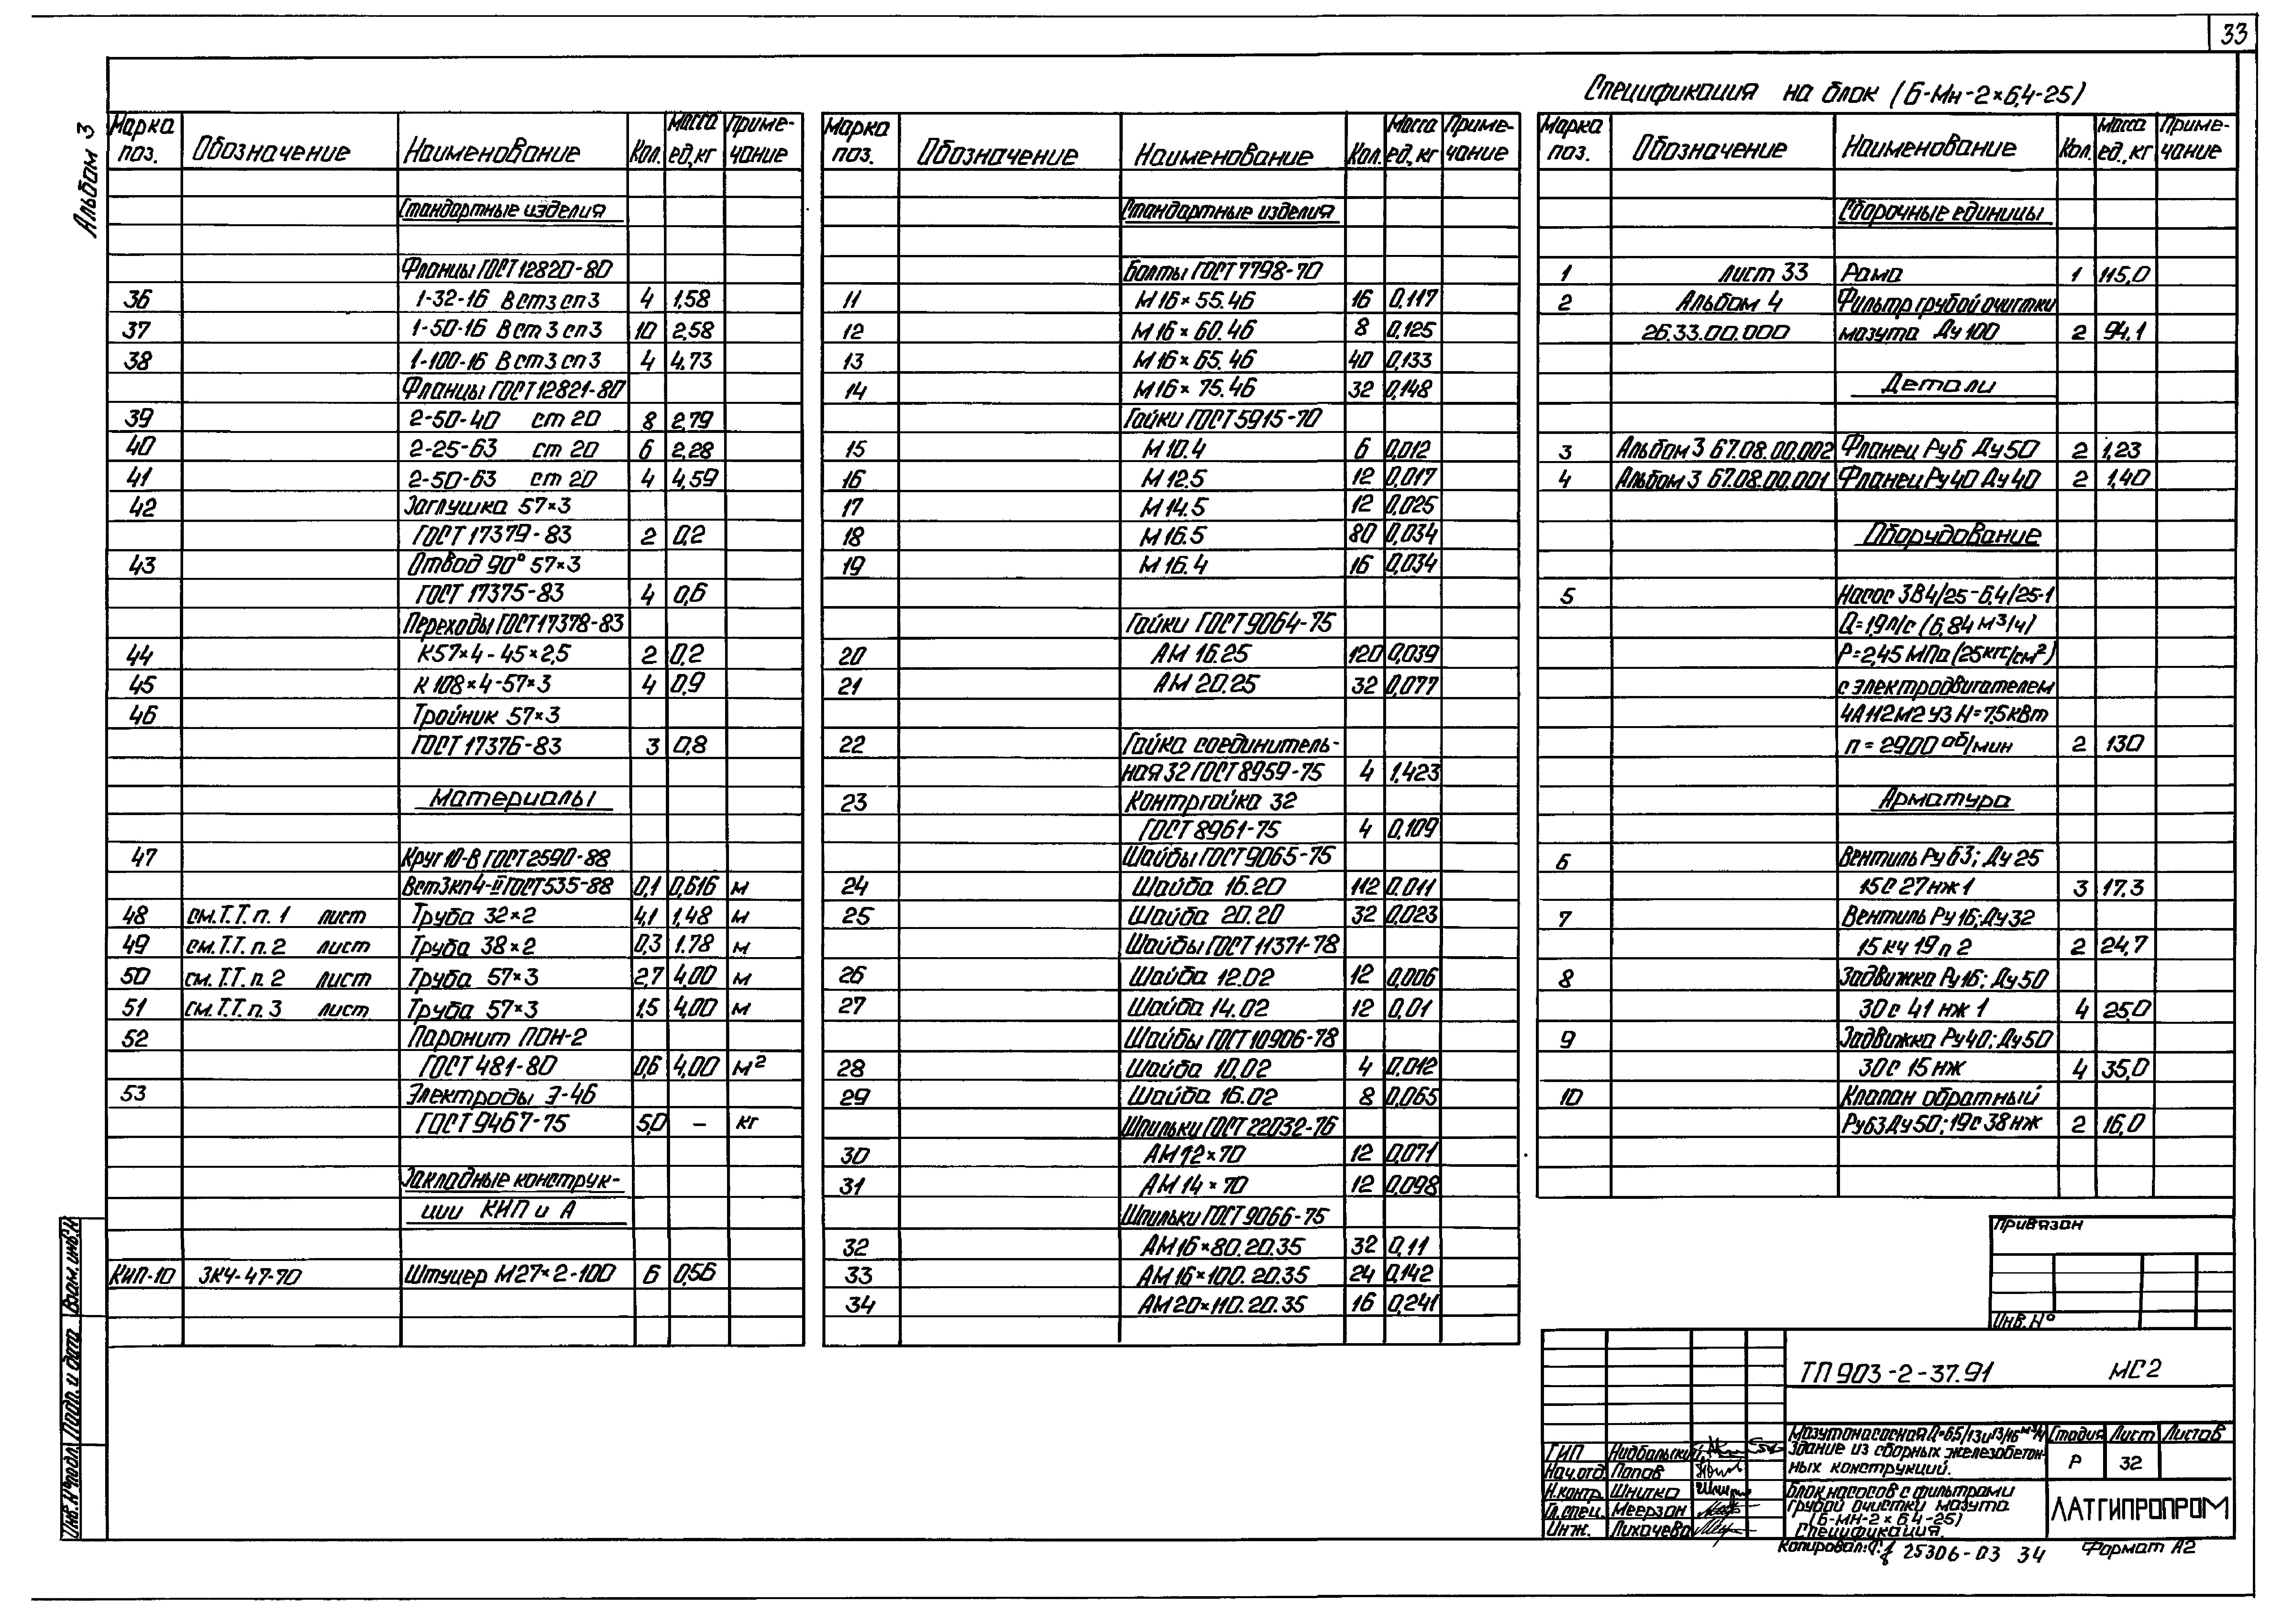 33
Альбом 3
Спецификация на блок (Б-Мн-2×6,4-25)
Марка поз. Обозначение Наименование Кол. Масса ед,кг Приме-чание
Стандартные изделия
Фланцы ГОСТ 12820-80
36 1-32-16 Вст3сп3 4 1,58
37 1-50-16 Вст3сп3 10 2,58
38 1-100-16 Вст3сп3 4 4,73
Фланцы ГОСТ 12821-80
39 2-50-40 ст 20 8 2,79
40 2-25-63 ст 20 6 2,28
41 2-50-63 ст 20 4 4,59
42 Заглушка 57×3
ГОСТ 17379-83 2 0,2
43 Отвод 90° 57×3
ГОСТ 17375-83 4 0,6
Переходы ГОСТ 17378-83
44 К57×4-45×2,5 2 0,2
45 К 108×4-57×3 4 0,9
46 Тройник 57×3
ГОСТ 17376-83 3 0,8
Материалы
47 Круг 10-В ГОСТ 2590-88
Вст3кп4-II ГОСТ 535-88 0,1 0,616 м
48 см. Т.Т. п. 1 лист Труба 32×2 4,1 1,48 м
49 см. Т.Т. п. 2 лист Труба 38×2 0,3 1.78 м
50 см. Т.Т. п. 2 лист Труба 57×3 2,7 4,00 м
51 см. Т.Т. п. 3 лист Труба 57×3 1,5 4,00 м
52 Паронит ПОН-2
ГОСТ 481-80 0,6 4,00 м²
53 Электроды Э-46
ГОСТ 9467-75 5,0 – кг
Закладные конструк-
ции КИП и А
КИП-10 ЗК4-47-70 Штуцер М27×2-100 6 0,56
Марка поз. Обозначение Наименование Кол. Масса ед,кг Приме-чание
Стандартные изделия
Болты ГОСТ 7798-70
11 М16×55.46 16 0,117
12 М16×60.46 8 0,125
13 М16×65.46 40 0,133
14 М16×75.46 32 0,148
Гайки ГОСТ 5915-70
15 М10.4 6 0,012
16 М12.5 12 0,017
17 М14.5 12 0,025
18 М16.5 80 0,034
19 М16.4 16 0,034
Гайки ГОСТ 9064-75
20 АМ 16.25 120 0,039
21 АМ 20.25 32 0,077
22 Гайка соединитель-
ная 32 ГОСТ 8959-75 4 1,423
23 Контргайка 32
ГОСТ 8961-75 4 0,109
Шайбы ГОСТ 9065-75
24 Шайба 16.20 112 0.011
25 Шайба 20.20 32 0,023
Шайбы ГОСТ 11371-78
26 Шайба 12.02 12 0,006
27 Шайба 14.02 12 0,01
Шайбы ГОСТ 10906-78
28 Шайба 10.02 4 0.012
29 Шайба 16.02 8 0,065
Шпильки ГОСТ 22032-76
30 АМ12×70 12 0,071
31 АМ14×70 12 0,098
Шпильки ГОСТ 9066-75
32 АМ16×80.20.35 32 0,11
33 АМ16×100.20.35 24 0,142
34 АМ20×110.20.35 16 0,241
Марка поз. Обозначение Наименование Кол. Масса ед.,кг Приме-чание
Сборочные единицы
1 лист 33 Рама 1 115,0
2 Альбом 4 Фильтр грубой очистки
26.33.00.000 мазута Ду 100 2 94,1
Детали
3 Альбом 3 67.08.00.002 Фланец Ру6 Ду50 2 1,23
4 Альбом 3 67.08.00.001 Фланец Ру40 Ду40 2 1,40
Оборудование
5 Насос 3В4/25-6,4/25-1
Q=1,9л/с (6,84 м³/ч)
Р=2,45 МПа (25кгс/см²)
с электродвигателем
4А112М2У3 N=7,5кВт
п=2900 об/мин 2 130
Арматура
6 Вентиль Ру 63; Ду 25
15с 27нж 1 3 17.3
7 Вентиль Ру 16; Ду 32
15 кч 19 п 2 2 24,7
8 Задвижка Ру16; Ду50
30 с 41 нж 1 4 25,0
9 Задвижка Ру40; Ду50
30с 15 нж 4 35,0
10 Клапан обратный
Ру63 Ду 50; 19с 38 нж 2 16,0
Привязан
Инв. №
ТП 903-2-37.91 МС2
Мазутонасосная Q=6,5/13 и 13/16 м³/ч
Здание из сборных железобетон-
ных конструкций.
Стадия Лист Листов
Р 32
Блок насосов с фильтрами
грубой очистки мазута
(Б-МН-2×6.4-25)
Спецификация.
ЛАТГИПРОПРОМ
ГИП Нидбальский
Нач.отд. Попов
Н.контр. Шнитко
Гл.спец. Меерзон
Инж. Лихачева
Взам. инв. №
Подп. и дата
Инв. № подл.
Копировал: 25306-03 34 Формат А2